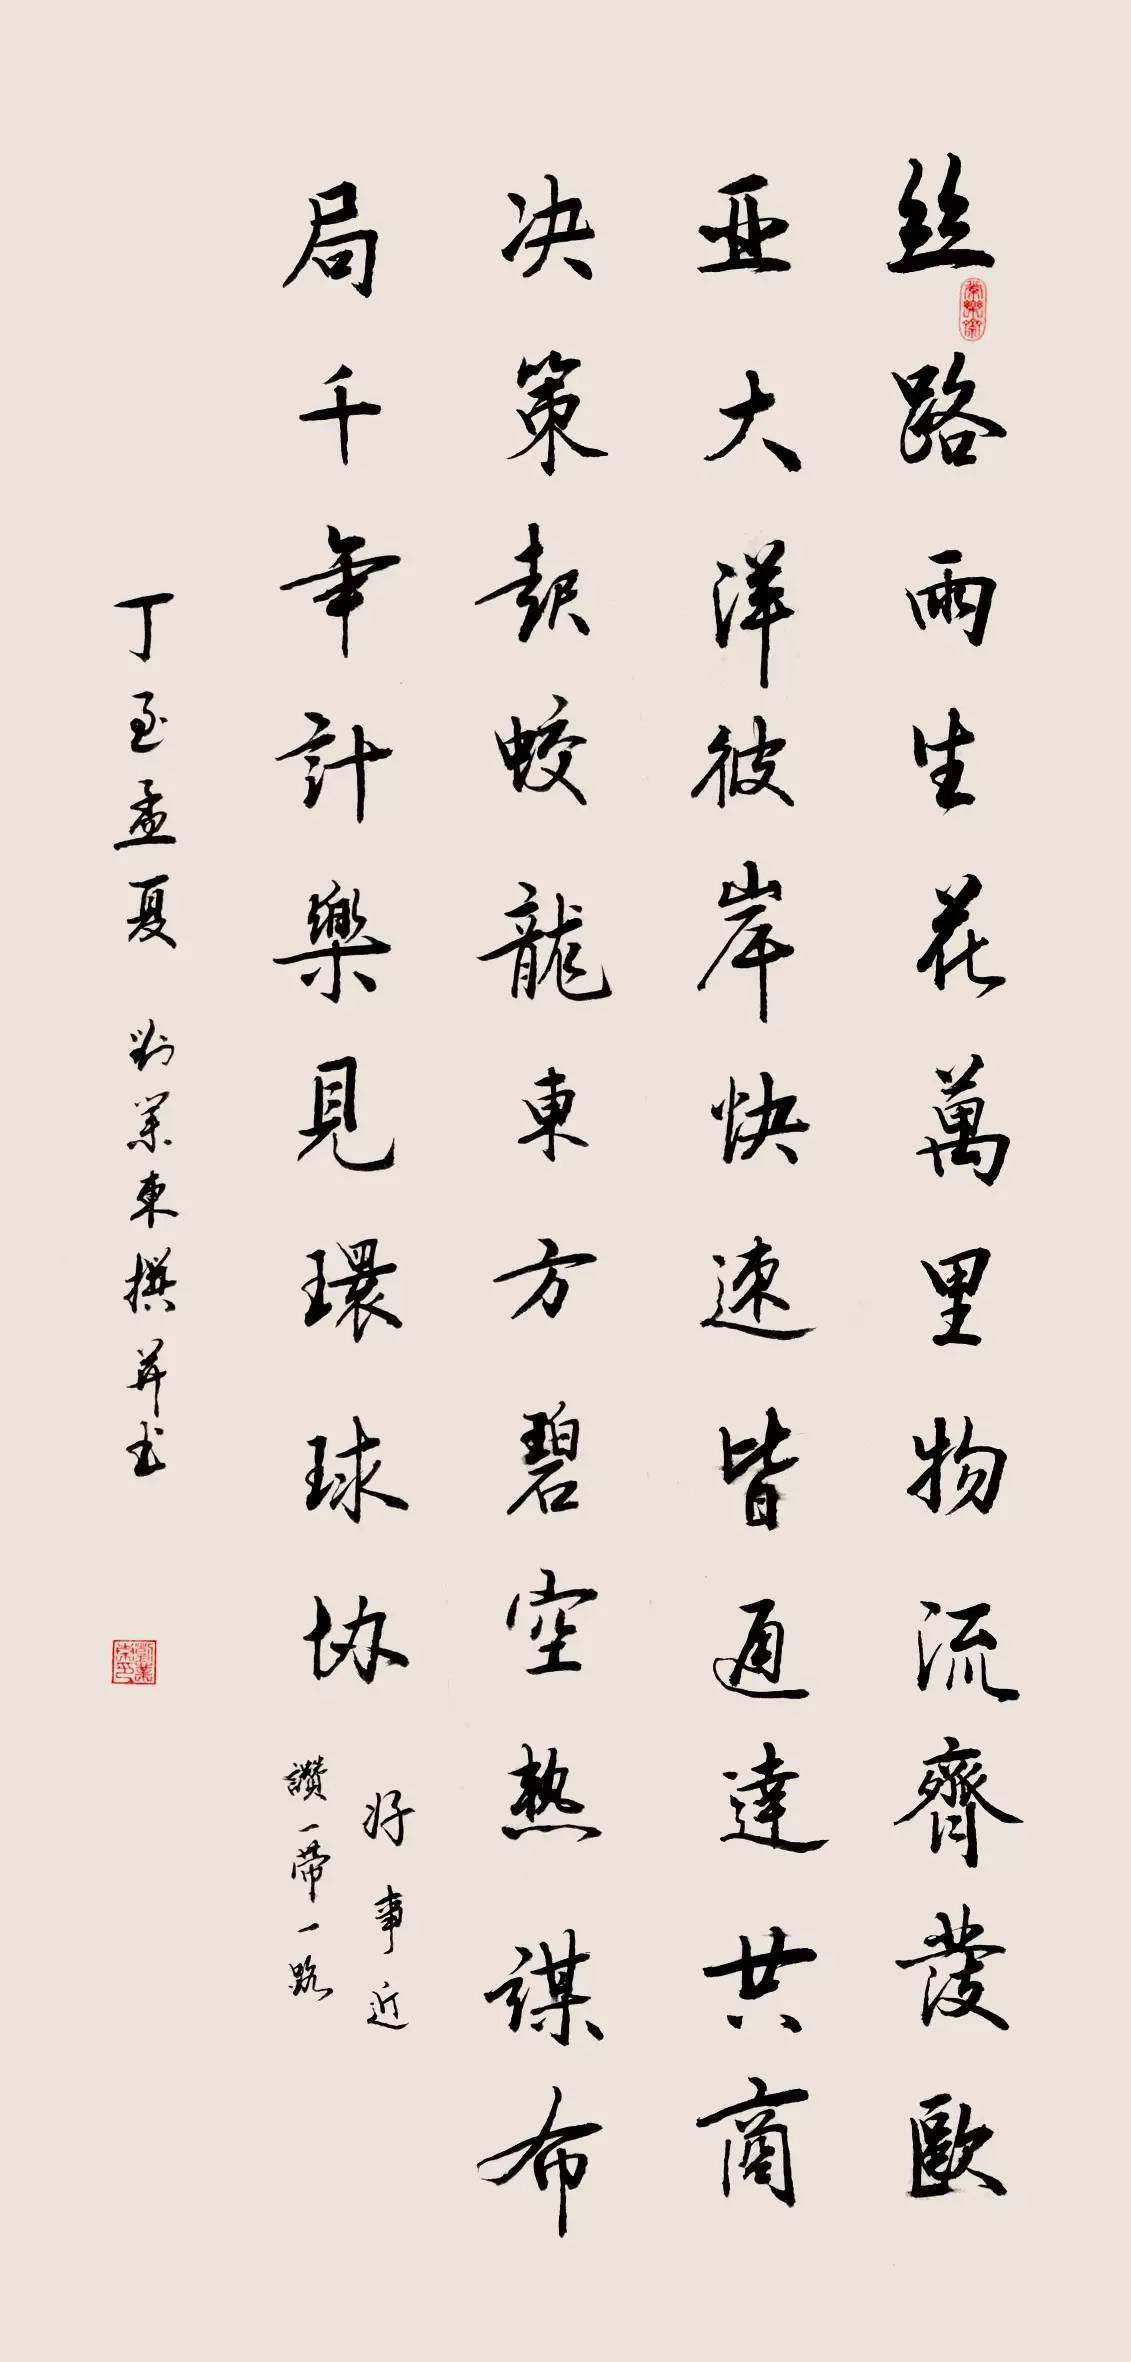 丝路雨生花萬里物流齊發歐
亚大洋彼岸快速皆通達共商
决策起蛟龍東方碧空热謀布
局千年計樂見環球协
好事近
讚一帶一路
丁酉孟夏 劉業東撰并书
劉業東印